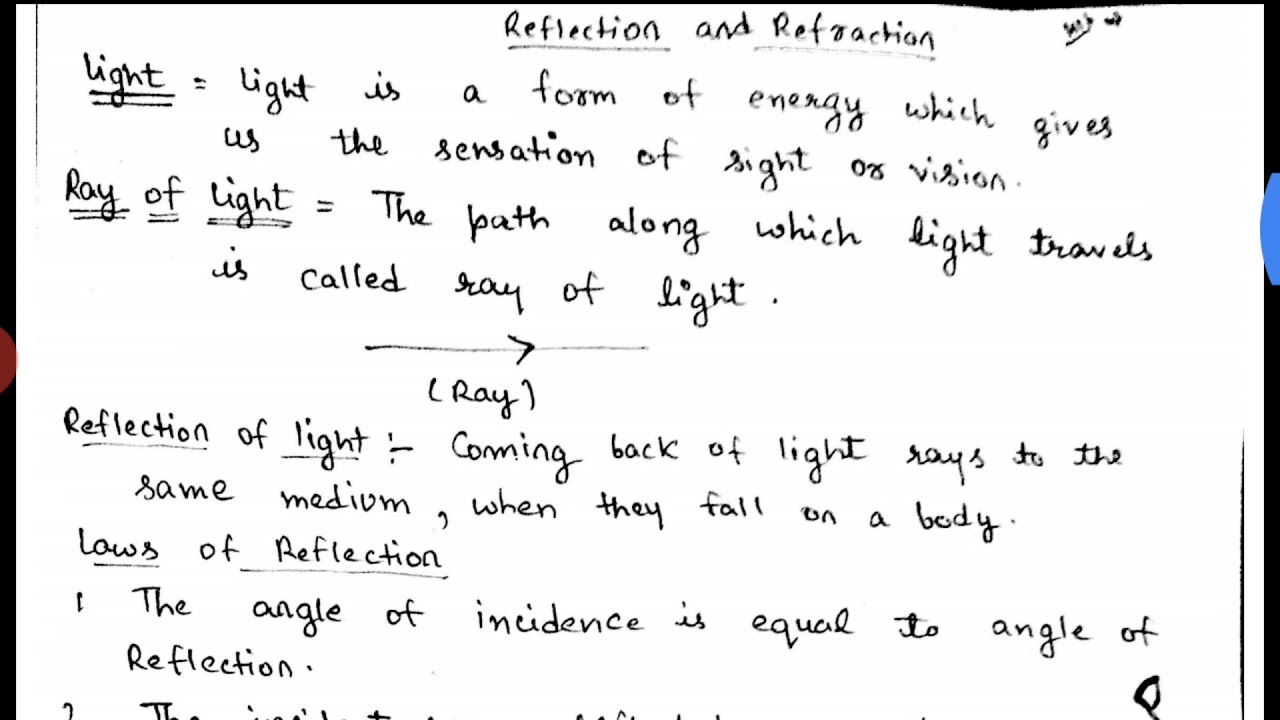 Reflection and Refraction
light = light is a form of energy which gives
us the sensation of sight or vision.
Ray of light = The path along which light travels
is called ray of light.
(Ray)
Reflection of light :- Coming back of light rays to the
same medium, when they fall on a body.
Laws of Reflection
1 The angle of incidence is equal to angle of
Reflection.
2 The incident